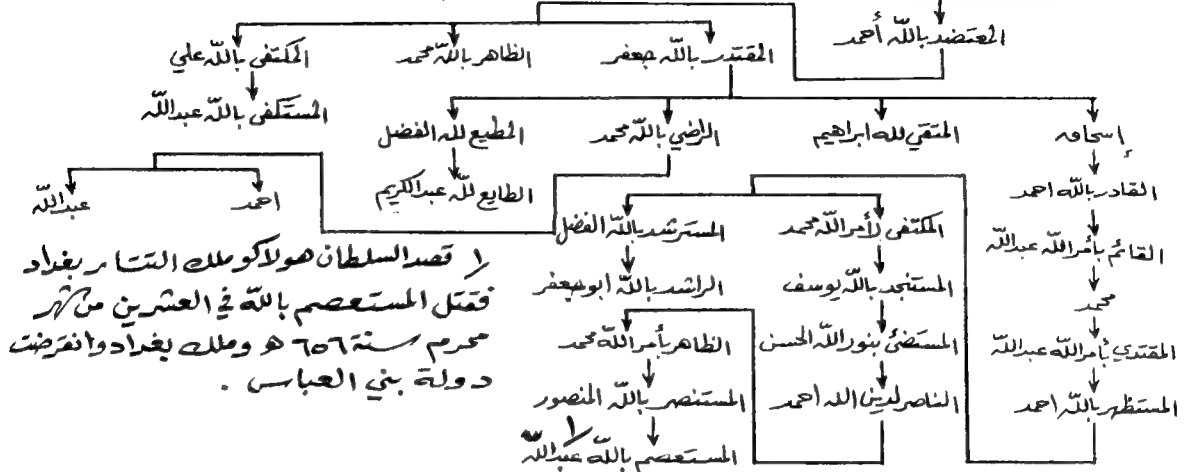 المعتضد بالله أحمد
المقتدر بالله جعفر
الظاهر بالله محمد
المكتفى بالله علي
المستكفى بالله عبدالله
إسحاق
المتقي لله ابراهيم
الراضي بالله محمد
المطيع لله الفضل
الطايع لله عبدالكريم
احمد
عبدالله
القادر بالله احمد
القائم بأمر الله عبدالله
محمد
المقتدي بأمر الله عبدالله
المستظهر بالله احمد
المكتفى لأمر الله محمد
المسترشد بالله الفضل
المستنجد بالله يوسف
الراشد بالله ابوجعفر
المستضئ بنور الله الحسن
الناصر لدين الله احمد
الظاهر بأمر الله محمد
المستنصر بالله المنصور
المستعصم بالله عبدالله
١/ قصد السلطان هولاكو ملك التتار بغداد
فقتل المستعصم بالله في العشرين من شهر
محرم سنة ٦٥٦ ه وملك بغداد وانقرضت
دولة بني العباس .